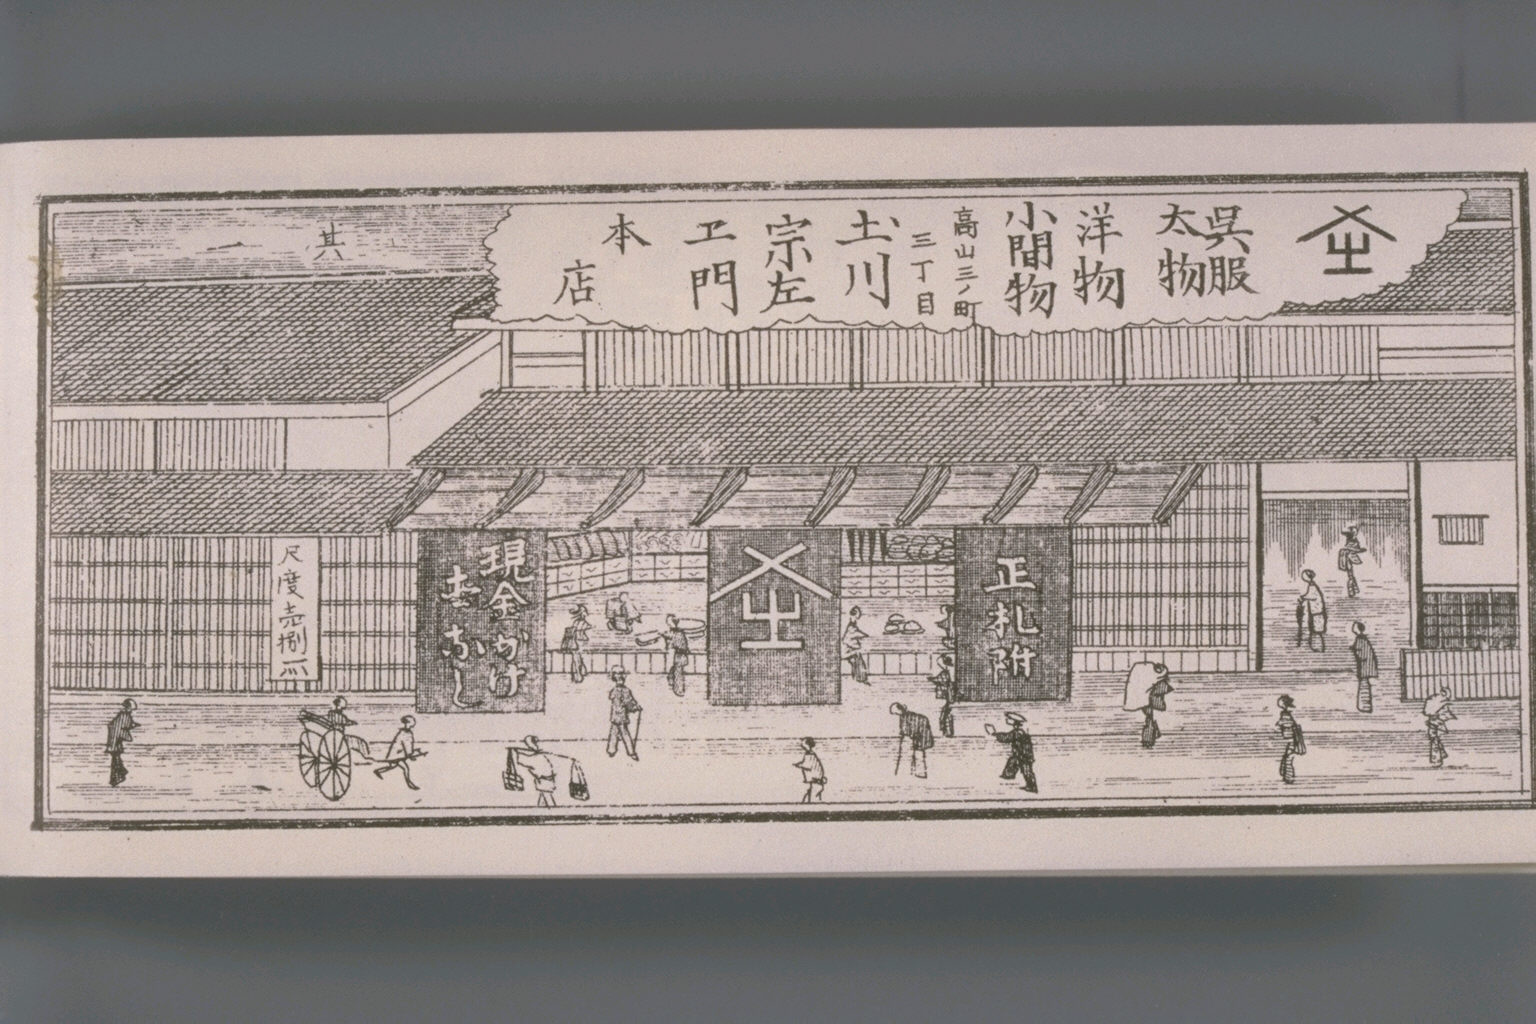 呉服
太物
洋物
小間物
高山三ノ町
三丁目
土川
宗左
ヱ門
本店
其一
正札附
現金かけ
直なし
尺度売捌所